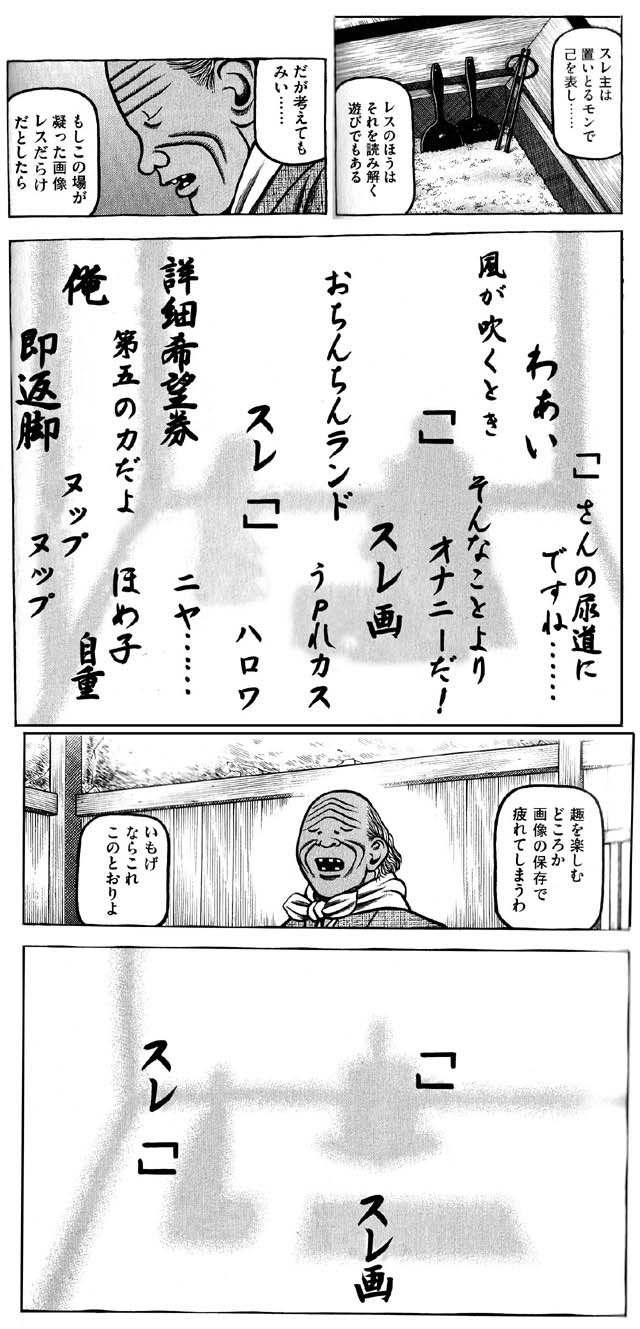 スレ主は
置いとるモンで
己を表し……
レスのほうは
それを読み解く
遊びでもある
だが考えても
みい……
もしこの場が
凝った画像
レスだらけ
だとしたら
「」さんの尿道に
ですね……
わあい
風が吹くとき
そんなことより
オナニーだ!
「」
スレ画
おちんちんランド
うpれカス
スレ「」
ハロワ
詳細希望券
ニヤ……
第五の力だよ
ほめ子
俺
自重
即返脚
ヌップ
ヌップ
趣を楽しむ
どころか
画像の保存で
疲れてしまうわ
いもげ
ならこれ
このとおりよ
「」
スレ画
スレ「」